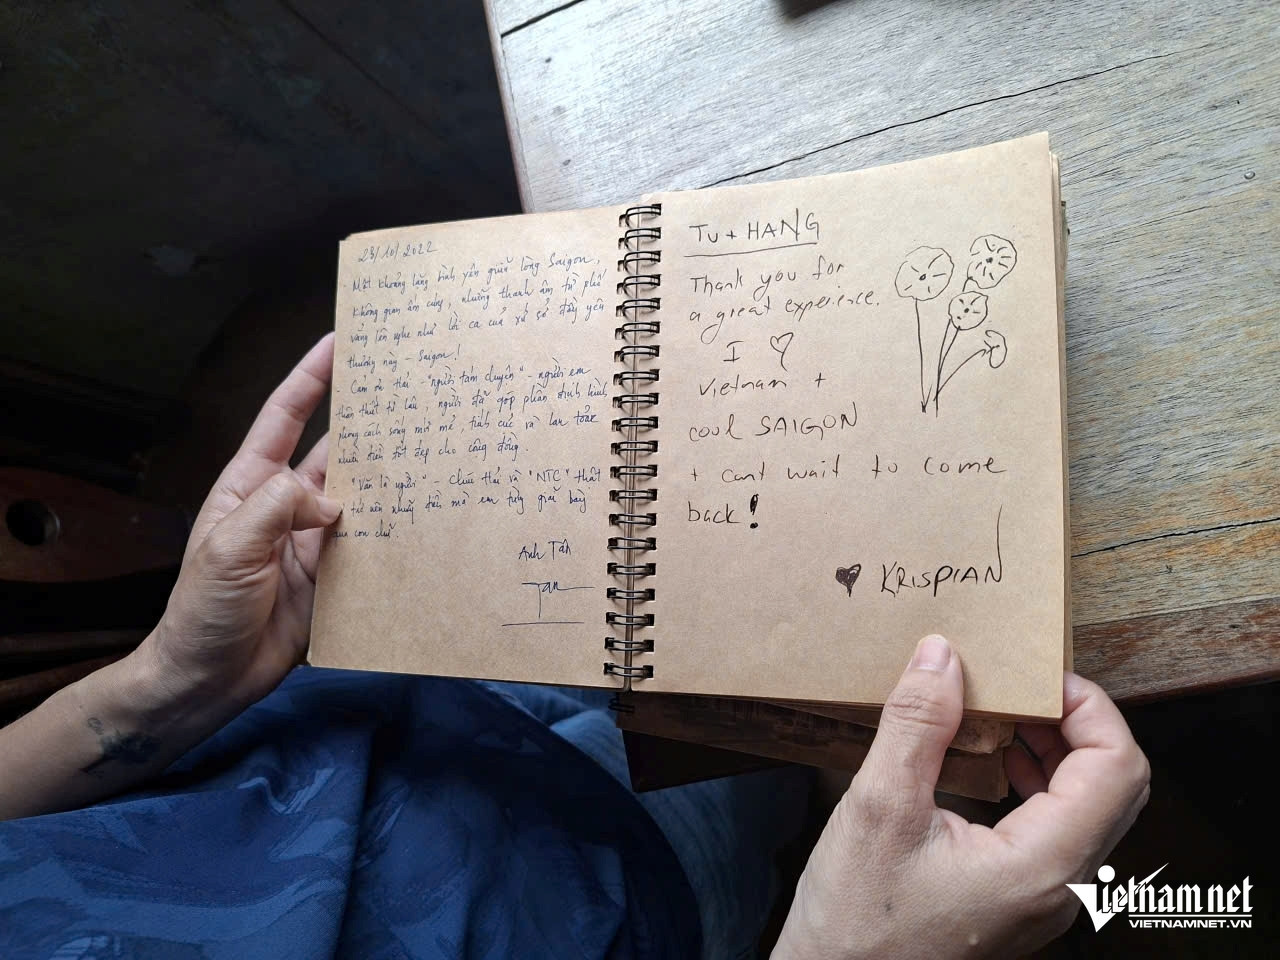 23/10/2022
- Một khoảng lặng bình yên giữa lòng Saigon,
không gian ấm cúng, những thanh âm từ phố
vắng lên nghe như lời ca của xứ sở đầy yêu
thương này - Saigon!
- Cảm ơn Thái - "người tám chuyện" - người em
thân thiết từ lâu, người đã góp phần định hình
phong cách sống mới mẻ, tích cực và lan toả
nhiều điều tốt đẹp cho cộng đồng.
- "Văn là người" - chúc Thái và "NTC" thật
tử tế nên những điều mà em từng giãi bày
qua con chữ.
Anh Tân
Tan
TU + HANG
Thank you for
a great experience.
I ♡
Vietnam +
cool SAIGON
+ cant wait to come
back!
♥ KRISPIAN
Vietnamnet
VIETNAMNET.VN